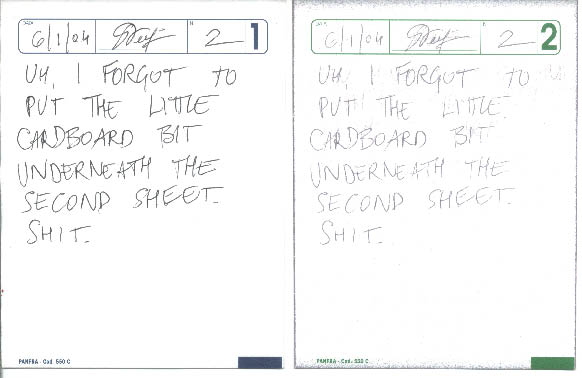 DATA
6/1/04
N.
2
1
UH, I FORGOT TO
PUT THE LITTLE
CARDBOARD BIT
UNDERNEATH THE
SECOND SHEET.
SHIT.
PANFRA - Cod. 550 C
DATA
6/1/04
N.
2
2
UH, I FORGOT TO
PUT THE LITTLE
CARDBOARD BIT
UNDERNEATH THE
SECOND SHEET.
SHIT.
PANFRA - Cod. 550 C